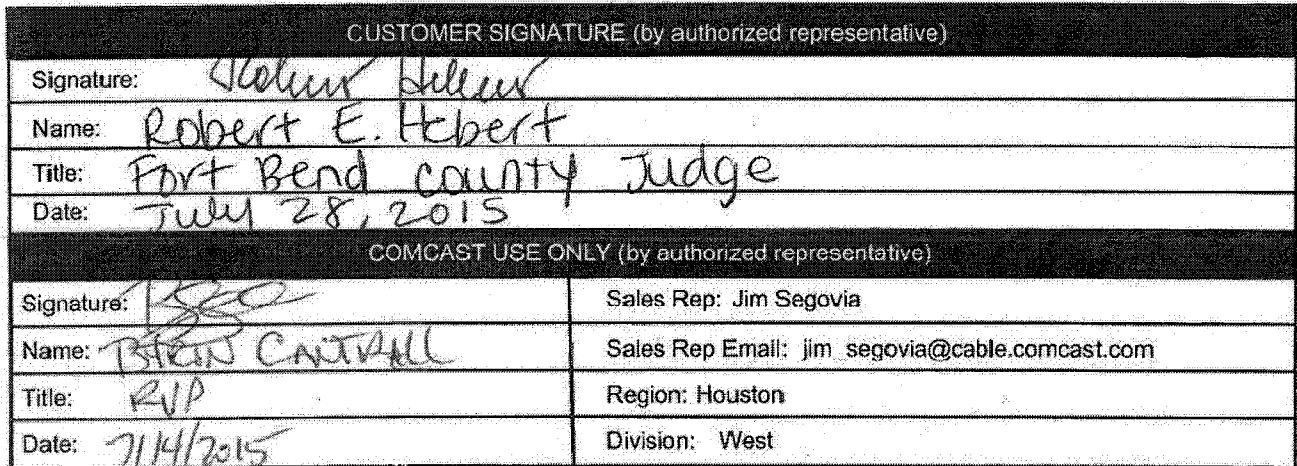 CUSTOMER SIGNATURE (by authorized representative)
Signature:
Name: Robert E. Hebert
Title: Fort Bend county Judge
Date: July 28, 2015
COMCAST USE ONLY (by authorized representative)
Signature:
Sales Rep: Jim Segovia
Name: CANTRALL
Sales Rep Email: jim_segovia@cable.comcast.com
Title: RVP
Region: Houston
Date: 7/14/2015
Division: West